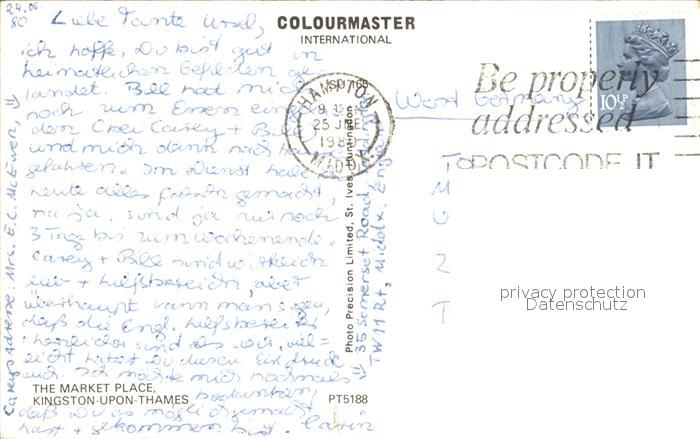 24.06.
80
Liebe Tante Ursel,
ich hoffe, Du bist gut in
heimatlichen Gefilden ge
landet. Bill hat mich
noch zum Essen
den Casey + Bill
und mich dann nach
gefahren. Im Dienst habe
heute alles falsch gemacht,
na ja, sind ja nur noch
3 Tage bis zum Wochenende.
Casey + Bill sind wirklich
lieb + hilfsbereich, aber
überhaupt kann man sagen,
daß die Engl. hilfsbereiter
+ herzlicher sind als wir, viel=
eicht hattest Du diesen Eindruck
auch. Ich möchte mich nochmals
bedanken,
daß Du es möglich gemacht
hast + gekommen bist. Carin
Caseys Adresse: Mrs. E.C. McEwen, ⇓
⇓ 35 Somerset Road,
TW11 Rt, Middx. England
COLOURMASTER
INTERNATIONAL
Photo Precision Limited, St. Ives, Huntingdon
THE MARKET PLACE,
KINGSTON-UPON-THAMES
PT5188
HAMPTON
25 JNE
1980
MIDDX
Be properly
addressed
POSTCODE IT
10½P
West Germany
T
M
U
Z
T
privacy protection
Datenschutz